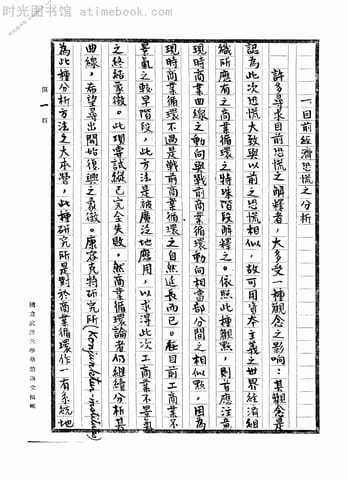 时光图书馆 - atimebook.com
一目前經濟恐慌之分析
許多尋求目前恐慌之解釋者，大多受一種觀念之影响：其觀念是
認為此次恐慌大致與以前之恐慌相似，故可用資本主義之世界經濟組
織所應有之商業循環之特殊階段解釋之。依照此種觀點，則首應注意
現時商業曲線之動向與戰前商業循環動向相當部分間之相似點，因為
現時商業循環不過是戰前商業循環之自然延長而已。在目前工商業不
景氣之較早階段，此方法是被廣泛地應用，以求得此次工商業不景氣
之終結象徵。此項嘗試縱已完全失敗，然商業循環論者仍繼續分析其
曲線，希望尋出開始復興之象徵。康存克特研究所(Konjunktur-institute)
為此種分析方法之大本營，此種研究所是對於商業循環作一有系統地
第一頁
國立武漢大學畢業論文稿紙